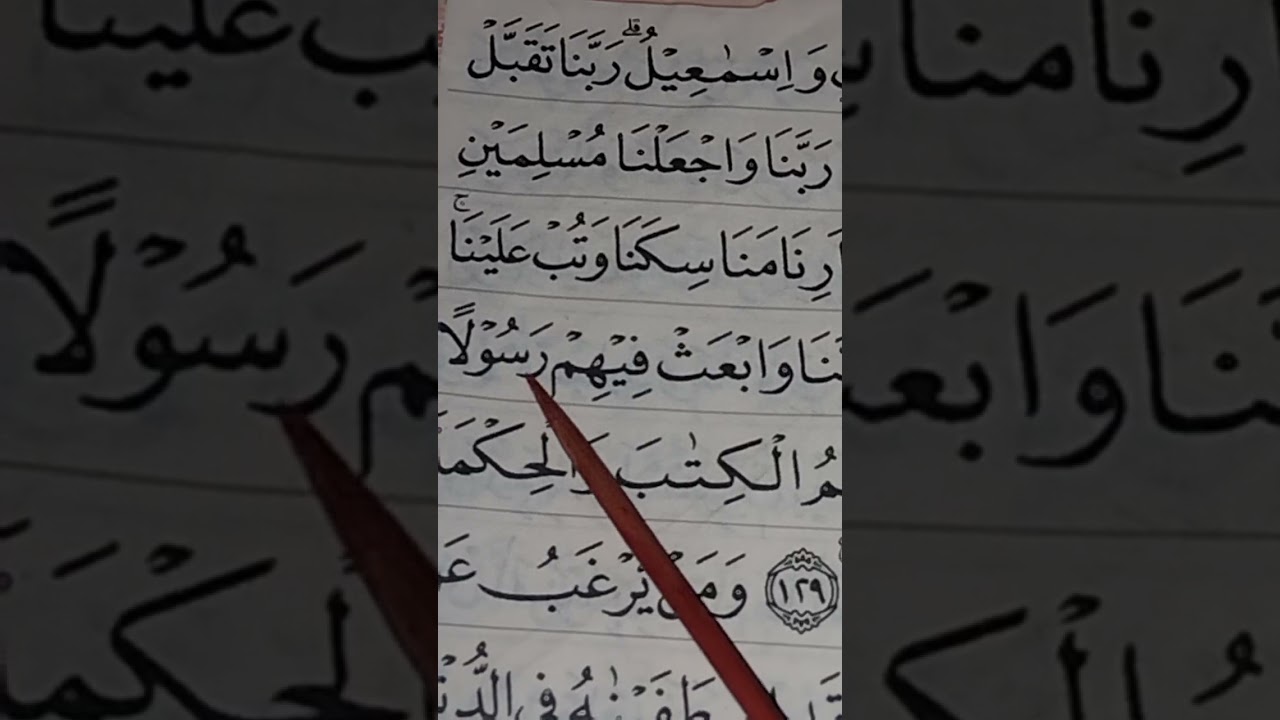 وَ اِسْمٰعِيْلُ ۗ رَبَّنَا تَقَبَّلْ
رَبَّنَا وَاجْعَلْنَا مُسْلِمَيْنِ
اَرِنَا مَنَاسِكَنَا وَتُبْ عَلَيْنَا ۚ
وَابْعَثْ فِيْهِمْ رَسُوْلًا
الْكِتٰبَ وَالْحِكْمَةَ
١٢٩ وَمَنْ يَّرْغَبُ
فِى الدُّنْ